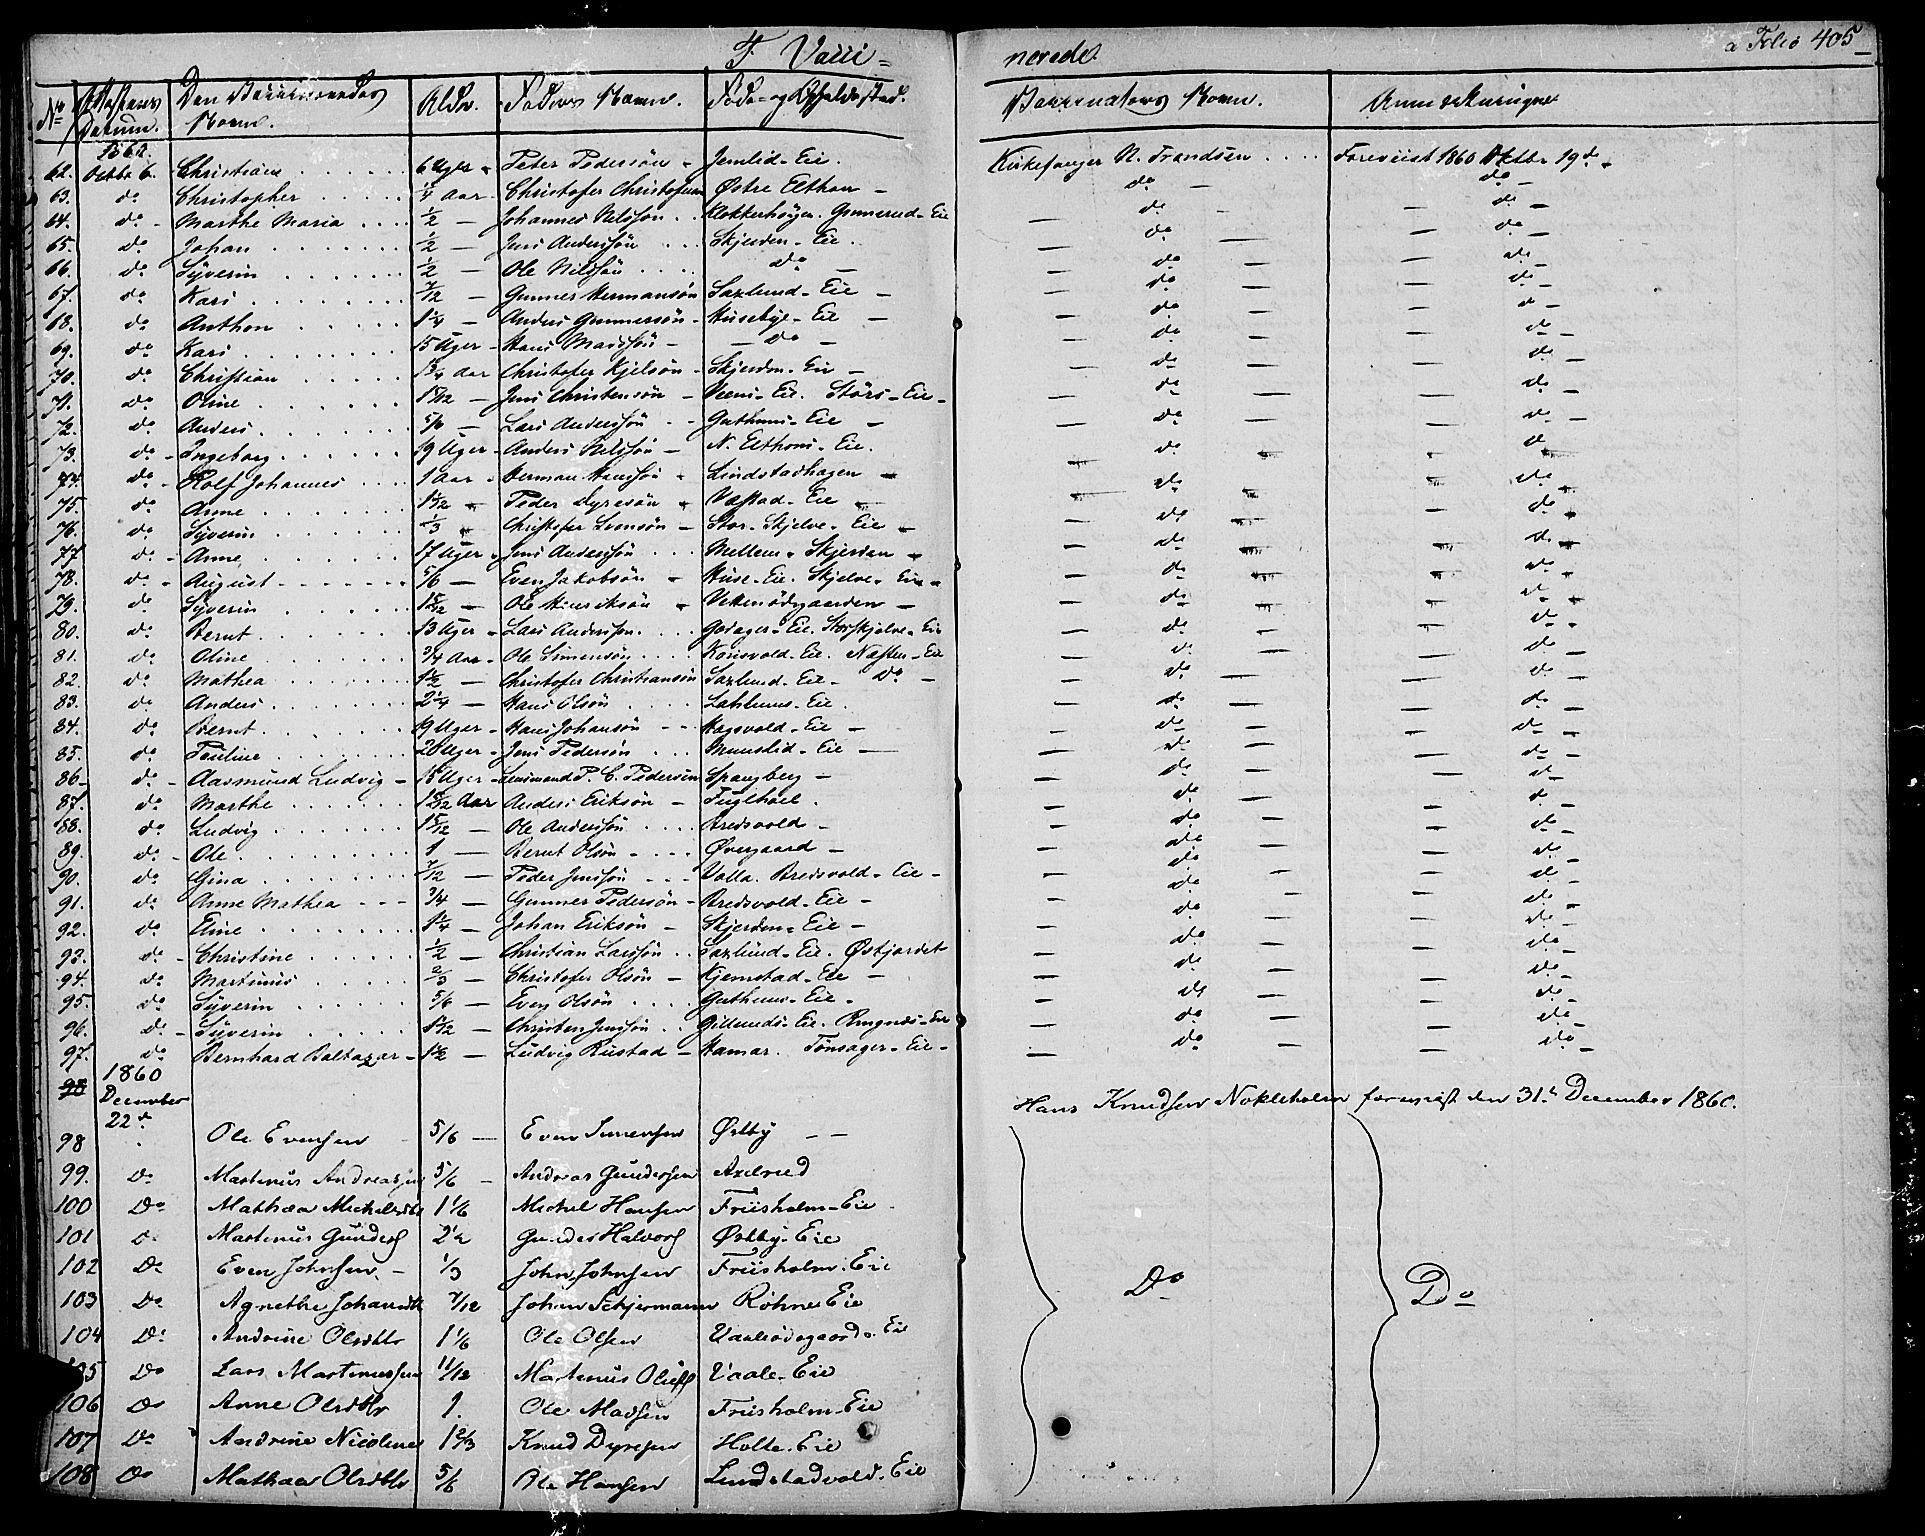 F. Vacci=
nerede.
a Folio 405
No Attestens Datum. Den Vaccineredes Navn. Alder. Faders Navn. Føde- og Opholdssted. Vaccinateurs Navn. Anmærkninger
1860.
62. Octbr 6. Christiane 6 Uger Peter Pedersön Jemlid-Eie. Kirkesanger N. Trandsen Foreviist 1860 Oktbr 19de
63. do Christopher 1/4 Aar Christofer Christofersen Østre Elthon do do
64. do Marthe Maria 1/2 Johannes Nilssön Klokkerhöyen. Gunnerud-Eie do do
65. do Johan 1/2 Jens Anderssön Skjerden-Eie. do do
66. do Syverin 1/2 Ole Nilssön do do do
67. do Kari 7/12 Gunner Hermansön Saxlund-Eie do do
68. do Anthon 1 1/4 Anders Gunnersön Husebye-Eie do do
69. do Kari 15 Uger Hans Madssön do do do
70. do Christian 1 3/4 Aar Christofer Kjelsön Skjerden-Eie do do
71. do Oline 1 5/12 Jens Christensön Veens-Eie. Störs-Eie do do
72. do Anders 5/6 Lars Anderssön Guthuus-Eie do do
73. do Ingeborg 19 Uger Anders Nilssön N. Elthons-Eie. do do
74. do Rolf Johannes 1 Aar Herman Hanssön Lindstadhagen do do
75. do Anne 1 1/2 Peder Dyresön Væstad-Eie do do
76. do Syverin 1/3 Christofer Svensön Stor-Skjelve-Eie do do
77. do Anne 17 Uger Jens Anderssön Mellem-Skjerden do do
78. do August 5/6 Even Jakobsön Huse-Eie. Skjelve-Eie do do
79. do Syverin 1 5/12 Ole Henriksön Vekkenödgaarden do do
80. do Bernt 13 Uger Lars Anderssen Godager-Eie. Storskjelve-Eie do do
81. do Oline 3/4 Aar Ole Simensön Korsvold-Eie. Næsten-Eie do do
82. do Mathea 1 1/2 Christofer Christiansön Saxlund-Eie. do do do
83. do Anders 2 1/4 Hans Olsön Lahluus-Eie. do do
84. do Bernt 19 Uger Hans Johansön Hagsvold-Eie do do
85. do Pauline 20 Uger Jens Pedersön Muuslid-Eie do do
86. do Aasmund Ludvig 15 Uger Lensmand P. C. Pedersen Spangberg do do
87. do Marthe 1 5/12 Aar Anders Eriksön Fuglhoel. do do
88. do Ludvig 1 5/12 Ole Anderssön Bredsvold do do
89. do Ole 1 Bernt Olsön Øvergaard do do
90. do Gina 7/12 Peder Jenssön Volla. Bredsvold-Eie do do
91. do Anne Mathea 3/4 Gunner Pedersön Bredsvold-Eie do do
92. do Eline 1 1/4 Johan Eriksön Skjerden-Eie do do
93. do Christine 1/2 Christian Larssön Saxlund-Eie. Østjordet do do
94. do Martinus 2/3 Christofer Olsön Kjemstad-Eie do do
95. do Syverin 5/6 Even Olsön Guthuus-Eie do do
96. do Syverin 1 1/2 Christen Jenssön Gillunds-Eie. Ringnæs-Eie do do
97. do Bernhard Baltazar 1 1/2 Ludvig Rustad Hamar. Tönsager-Eie do do
98 1860
December
22de Hans Knudsen Nokleholm forevist den 31te December 1860.
98 Ole Evensen 5/6 Even Simensen Østby
99. Do Martinus Andreassen 5/6 Andreas Gundersen Axelrud
100 Do Mathæa Mickelsdtr 1 1/6 Mickel Hansen Friisholm-Eie
101 Do Martinus Gunders 2 1/2 Gunder Halvors Østby-Eie
102 Do Even Johnsen 1/3 John Johnsen Friisholm-Eie Do Do
103 Do Agnethe Johansdtr 7/12 Johan Schjermann Röhne Eie
104 Do Andrine Olsdtr 1 1/6 Ole Olsen Vaaleödegaard-Eie
105 Do Lars Martinussen 11/12 Martinus Olufs Vaale-Eie
106 Do Anne Olsdtr 1. Ole Madsen Friisholm-Eie
107 Do Andrine Nicoline 1 2/3 Knud Dyresen Holte-Eie
108 Do Mathæa Olsdtr 5/6 Ole Hansen Lundstadvold-Eie